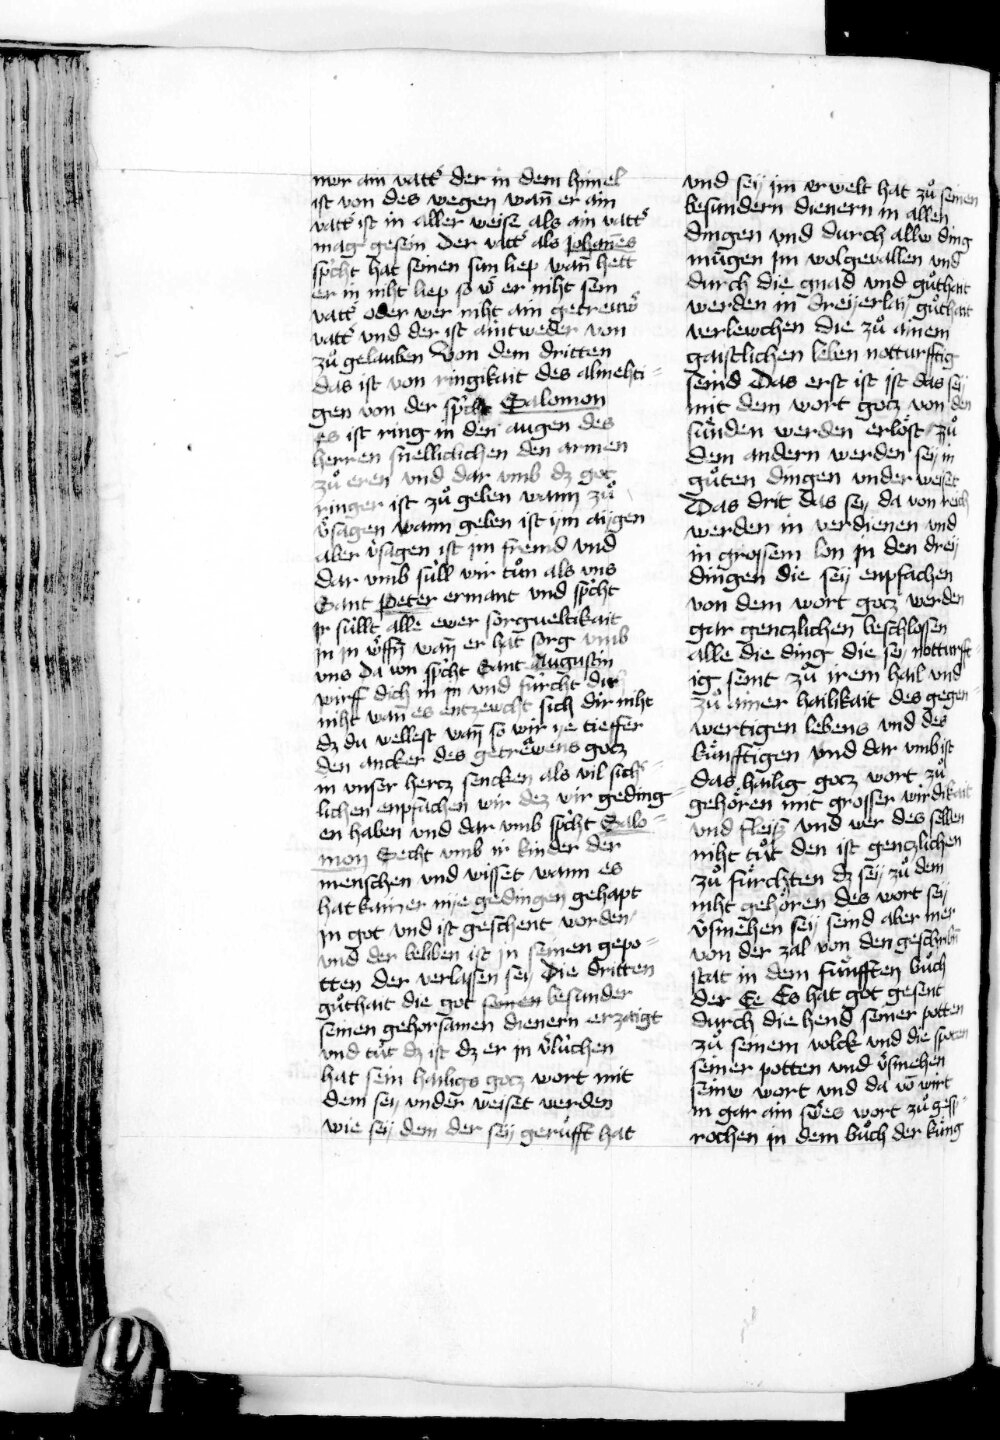 nwr ain vatt͛ der in dem himel
ist von des wegen wan̄ er ain
vatt͛ ist in aller weise als ain vatt͛
mag gesein Der vatt͛ als Johanēs
sp̊cht hat seinen sun liep wan̄ hett
er in niht liep so w͛ er niht sein
vatt͛ oder wer niht ain getreuw͛
vatt͛ vnd der ist aintweder von
zů gelauben Von dem dritten
das ist von ringikait des almehti=
gen von der sp̊cht Salomon
es ist ring in den augen des
herren snelliclichen den armen
zů eren vnd dar vmb dz got
ringer ist zů geben wann zů
v͛sagen wann geben ist ijm aijgen
aber v͛sagen ist jm fremd vnd
dar vmb süll wir tůn als vns
Sant Peter ermant vnd sp̊cht
jr süllt alle ewer sorgueltikait
jn in w͛ffn̄ wan̄ er hat sorg vmb
vns Da von sp̊cht Sant Augustin
wirff dich in jn vnd fürcht dir
niht wan̄ es entzewcht sich dir niht
dz du vellest wan̄ so wir ye tieffer
den ancker des getrêwens gotz
in vnser hertz sencken als vil sich͛=
lichen enpfachen wir dez wir geding=
en haben vnd dar vmb sp̊cht Salo=
mon Secht vmb ir kinder der
menschen vnd wisset wann es
hat kainer nye gedingen gehapt
jn got vnd ist geschent worden
vnd der beliben ist jn seinen gepo=
tten der verlassen seij Die dritten
gůthait die got seinen besunder
seinen gehorsamen dienern erzaigt
vnd tůt dz ist dz er jn v͛lühen
hat sein hailigs gotz wort mit
dem seij vnder weiset werden
wie seij dem der seij gerüfft hat
vnd seij jm erwelt hat zů seinen
besundern dienern in allen
dingen vnd durch allw ding
mügen jm wolgevallen vnd
durch die gnad vnd gůthait
werden in dreijerlaij gůthait
verlewchen die zů ainem
gaistlichen leben notturfftig
seind Das erst ist ist das seij
mit dem wort gotz von den
sünden werden erlöst zů
dem andern werden seij in
gůten dingen vnder weiset
Das drit das seij da von reich
werden in verdienen vnd
in grossem lon jn den dreij
dingen die seij enpfachen
von dem wort gotz werden
gar gentzlichen beschlossen
alle die ding die seij notturfft=
ig seint zů irem hail vnd
zů ainer hailikait des gegen=
wertigen lebens vnd des
künfftigen vnd dar vmb ist
das hailig gotz wort zů
gehören mit grosser wirdikait
vnd fleiß vnd wer des selben
niht tůt den ist gentzlichen
zů fürchten dz seij zů dem
niht gehören des wort seij
v͛smehen seij seind aber mer
von der zal von den geschribn̄
stat in dem fünfften bůch
der Ee Es hat got gesent
durch die hend seiner potten
zů seinem volck vnd die spoten
seiner potten vnd v͛smehen
seinw wort vnd da vō wirt
in gar ain sw͛es wort zů gesp=
rochen in dem bůch der küng